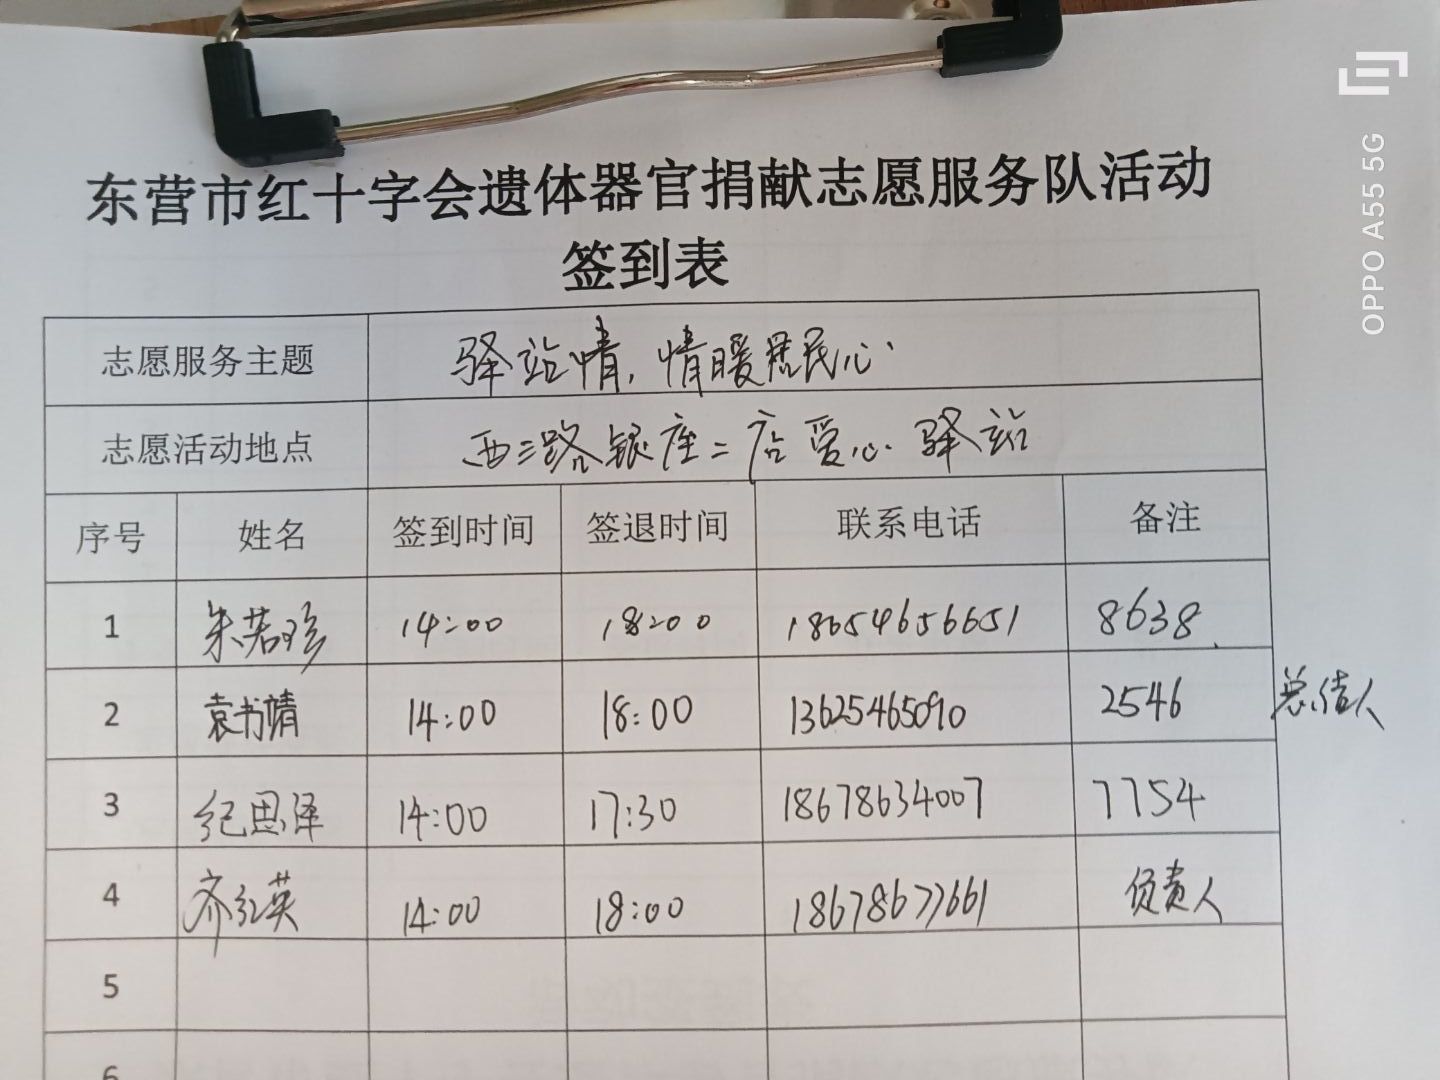 东营市红十字会遗体器官捐献志愿服务队活动
签到表
志愿服务主题 驿站情，情暖居民心
志愿活动地点 西三路银座二店爱心驿站
序号 姓名 签到时间 签退时间 联系电话 备注
1 朱若珍 14:00 18:00 18654656651 8638
2 袁书婧 14:00 18:00 13625465090 2546 总结人
3 纪思泽 14:00 17:30 18678634007 7754
4 齐红英 14:00 18:00 18678677661 负责人
5
6
OPPO A55 5G